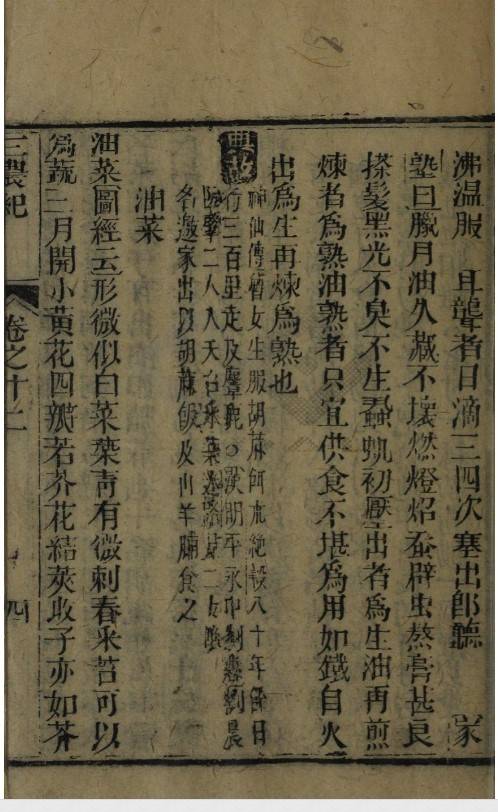 沸温服　耳聾者日滴三四次塞出卽聽　家
塾曰臘月油久藏不壞燃燈炤蚕辟虫熬膏甚良
搽髮黑光不臭不生蝨蟣初壓出者爲生油再煎
煉者爲熟油熟者只宜供食不堪爲用如鐵自火
出爲生再煉爲熟也
典故
神仙傳曾女生服胡蔴餌朮絶穀八十年日
行三百里走及麞鹿○漢明平永中剡縣劉晨
阮肇二人入天台采藥二女
名邀家出以胡蔴飯及山羊脯食之
油菜
油菜圖經云形微似白菜葉青有微刺春采苔可以
爲蔬三月開小黄花四瓣若芥花結莢收子亦如芥
三農紀　卷之十二　四